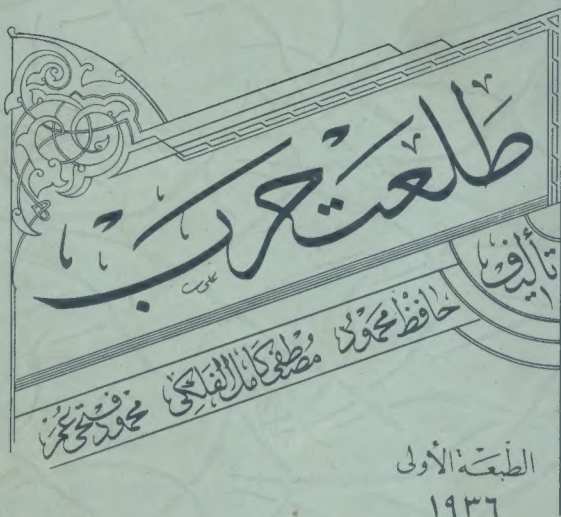 طلعت حرب
تأليف
حافظ محمود مصطفى كامل الفلكي محمود فتحي عمر
الطبعة الأولى
١٩٣٦